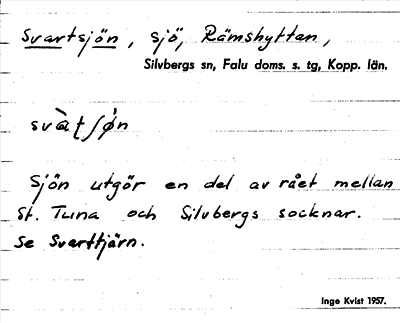 Svartsjön, sjö, Rämshyttan,
Silvbergs sn, Falu doms. s. tg, Kopp. län.
svàʈʃǿn
Sjön utgör en del av rået mellan
St. Tuna och Silvbergs socknar.
Se Svarttjärn.
Inge Kvist 1957.